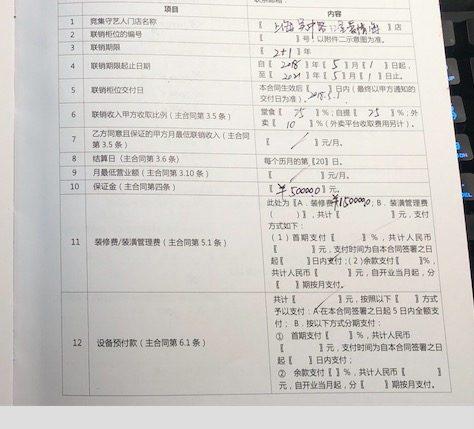 项目 内容
1 竞集守艺人门店名称 【上海 】店
2 联销柜位的编号 【 】号，以附件二示意图为准。
3 联销期限 【2+1】年
4 联销期限起止日期 自【2018】年【5】月【1】日起，
至【2021】年【5】月【1】日止。
5 联销柜位交付日 本合同生效后【 】日内（最终以甲方通知的
交付日为准）。2018.5.1.
6 联销收入甲方收取比例（主合同第 3.5 条） 堂食【25】%；自提【25】%；外
卖【10】%（外卖平台收取费用另计）。
7 乙方同意且保证的甲方月最低联销收入（主合同
第 3.5 条） 【 】元/月。
8 结算日（主合同第 3.6 条） 每个历月的第【20】日。
9 月最低营业额（主合同第 3.10 条） 【 】元/月。
10 保证金（主合同第四条） 【¥50000.0】元。
11 装修费/装潢管理费（主合同第 5.1 条） 此处为【A．装修费¥150000.0；B．装潢管理费
（ ）】，共计【 】元，支付
方式如下：
（1）首期支付【 】%，共计人民币
【 】元，支付时间为自本合同签署之日
起【 】日内支付；（2）余款支付【 】%，
共计人民币【 】元，自开业当月起，分
【 】期按月支付。
12 设备预付款（主合同第 6.1 条） 共计【 】元，按照以下【 】方式
予以支付：A.在本合同签署之日起 5 日内全额支
付； B．按以下方式分期支付：
① 首期支付【 】%，共计人民币
【 】元，支付时间为自本合同签署之日
起【 】日内支付；
② 余款支付【 】%，共计人民币【 】
元，自开业当月起，分【 】期按月支付。